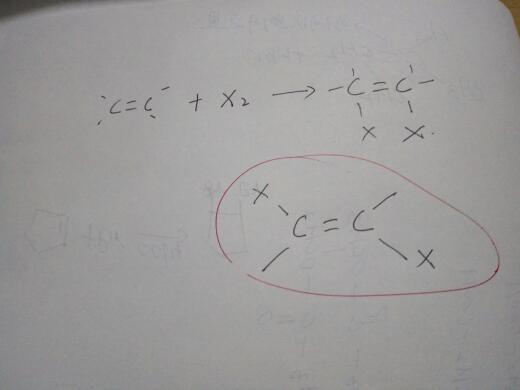 C=C + X₂ → -C=C-
X X.
X
C=C
X